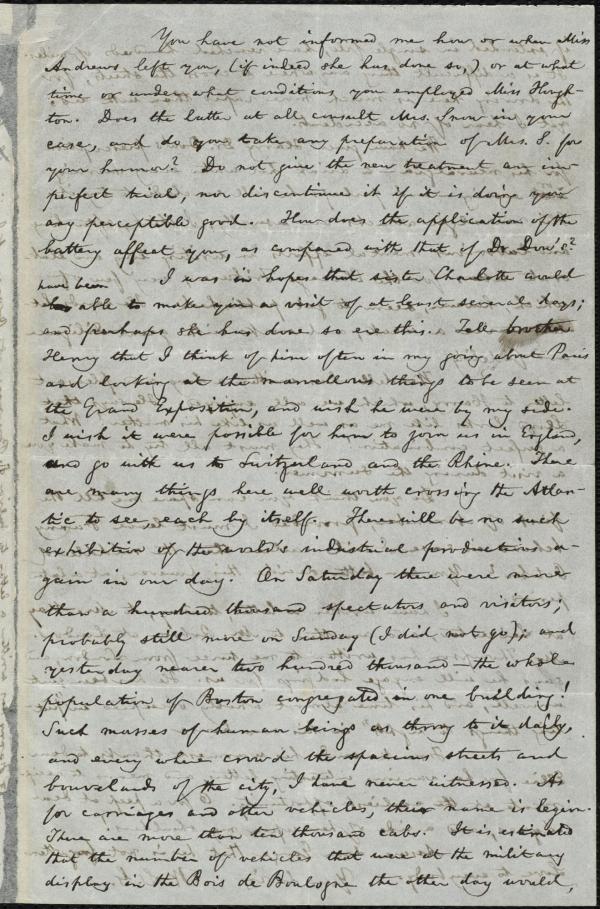 You have not informed me how or when Miss
Andrews left you, (if indeed she has done so,) or at what
time or under what conditions you employed Miss Hough-
ton. Does the latter at all consult Mrs. Snow in your
case, and do you take any preparation of Mrs. S. for
your humor? Do not give the new treatment an im-
perfect trial, nor discontinue it if it is doing you
any perceptible good. How does the application of the
battery affect you, as compared with that of Dr. Dow's?
I was in hopes that sister Charlotte would
have been able to make you a visit of at least several days;
and perhaps she has done so ere this. Tell brother
Henry that I think of him often in my going about Paris
and looking at the marvellous things to be seen at
the Grand Exposition, and wish he were by my side.
I wish it were possible for him to join us in England,
and go with us to Switzerland and the Rhine. There
are many things here well worth crossing the Atlan-
tic to see, each by itself. There will be no such
exhibition of the world's industrial productions a-
gain in our day. On Saturday there were more
than a hundred thousand spectators and visitors;
probably still more on Sunday (I did not go); and
yesterday nearer two hundred thousand—the whole
population of Boston congregated in one building!
Such masses of human beings as throng to it daily,
and every where crowd the spacious streets and
bouvelards of the city, I have never witnessed. As
for carriages and other vehicles, their name is legion.
There are more than ten thousand cabs. It is estimated
that the number of vehicles that were at the military
display in the Bois de Boulogne the other day would,